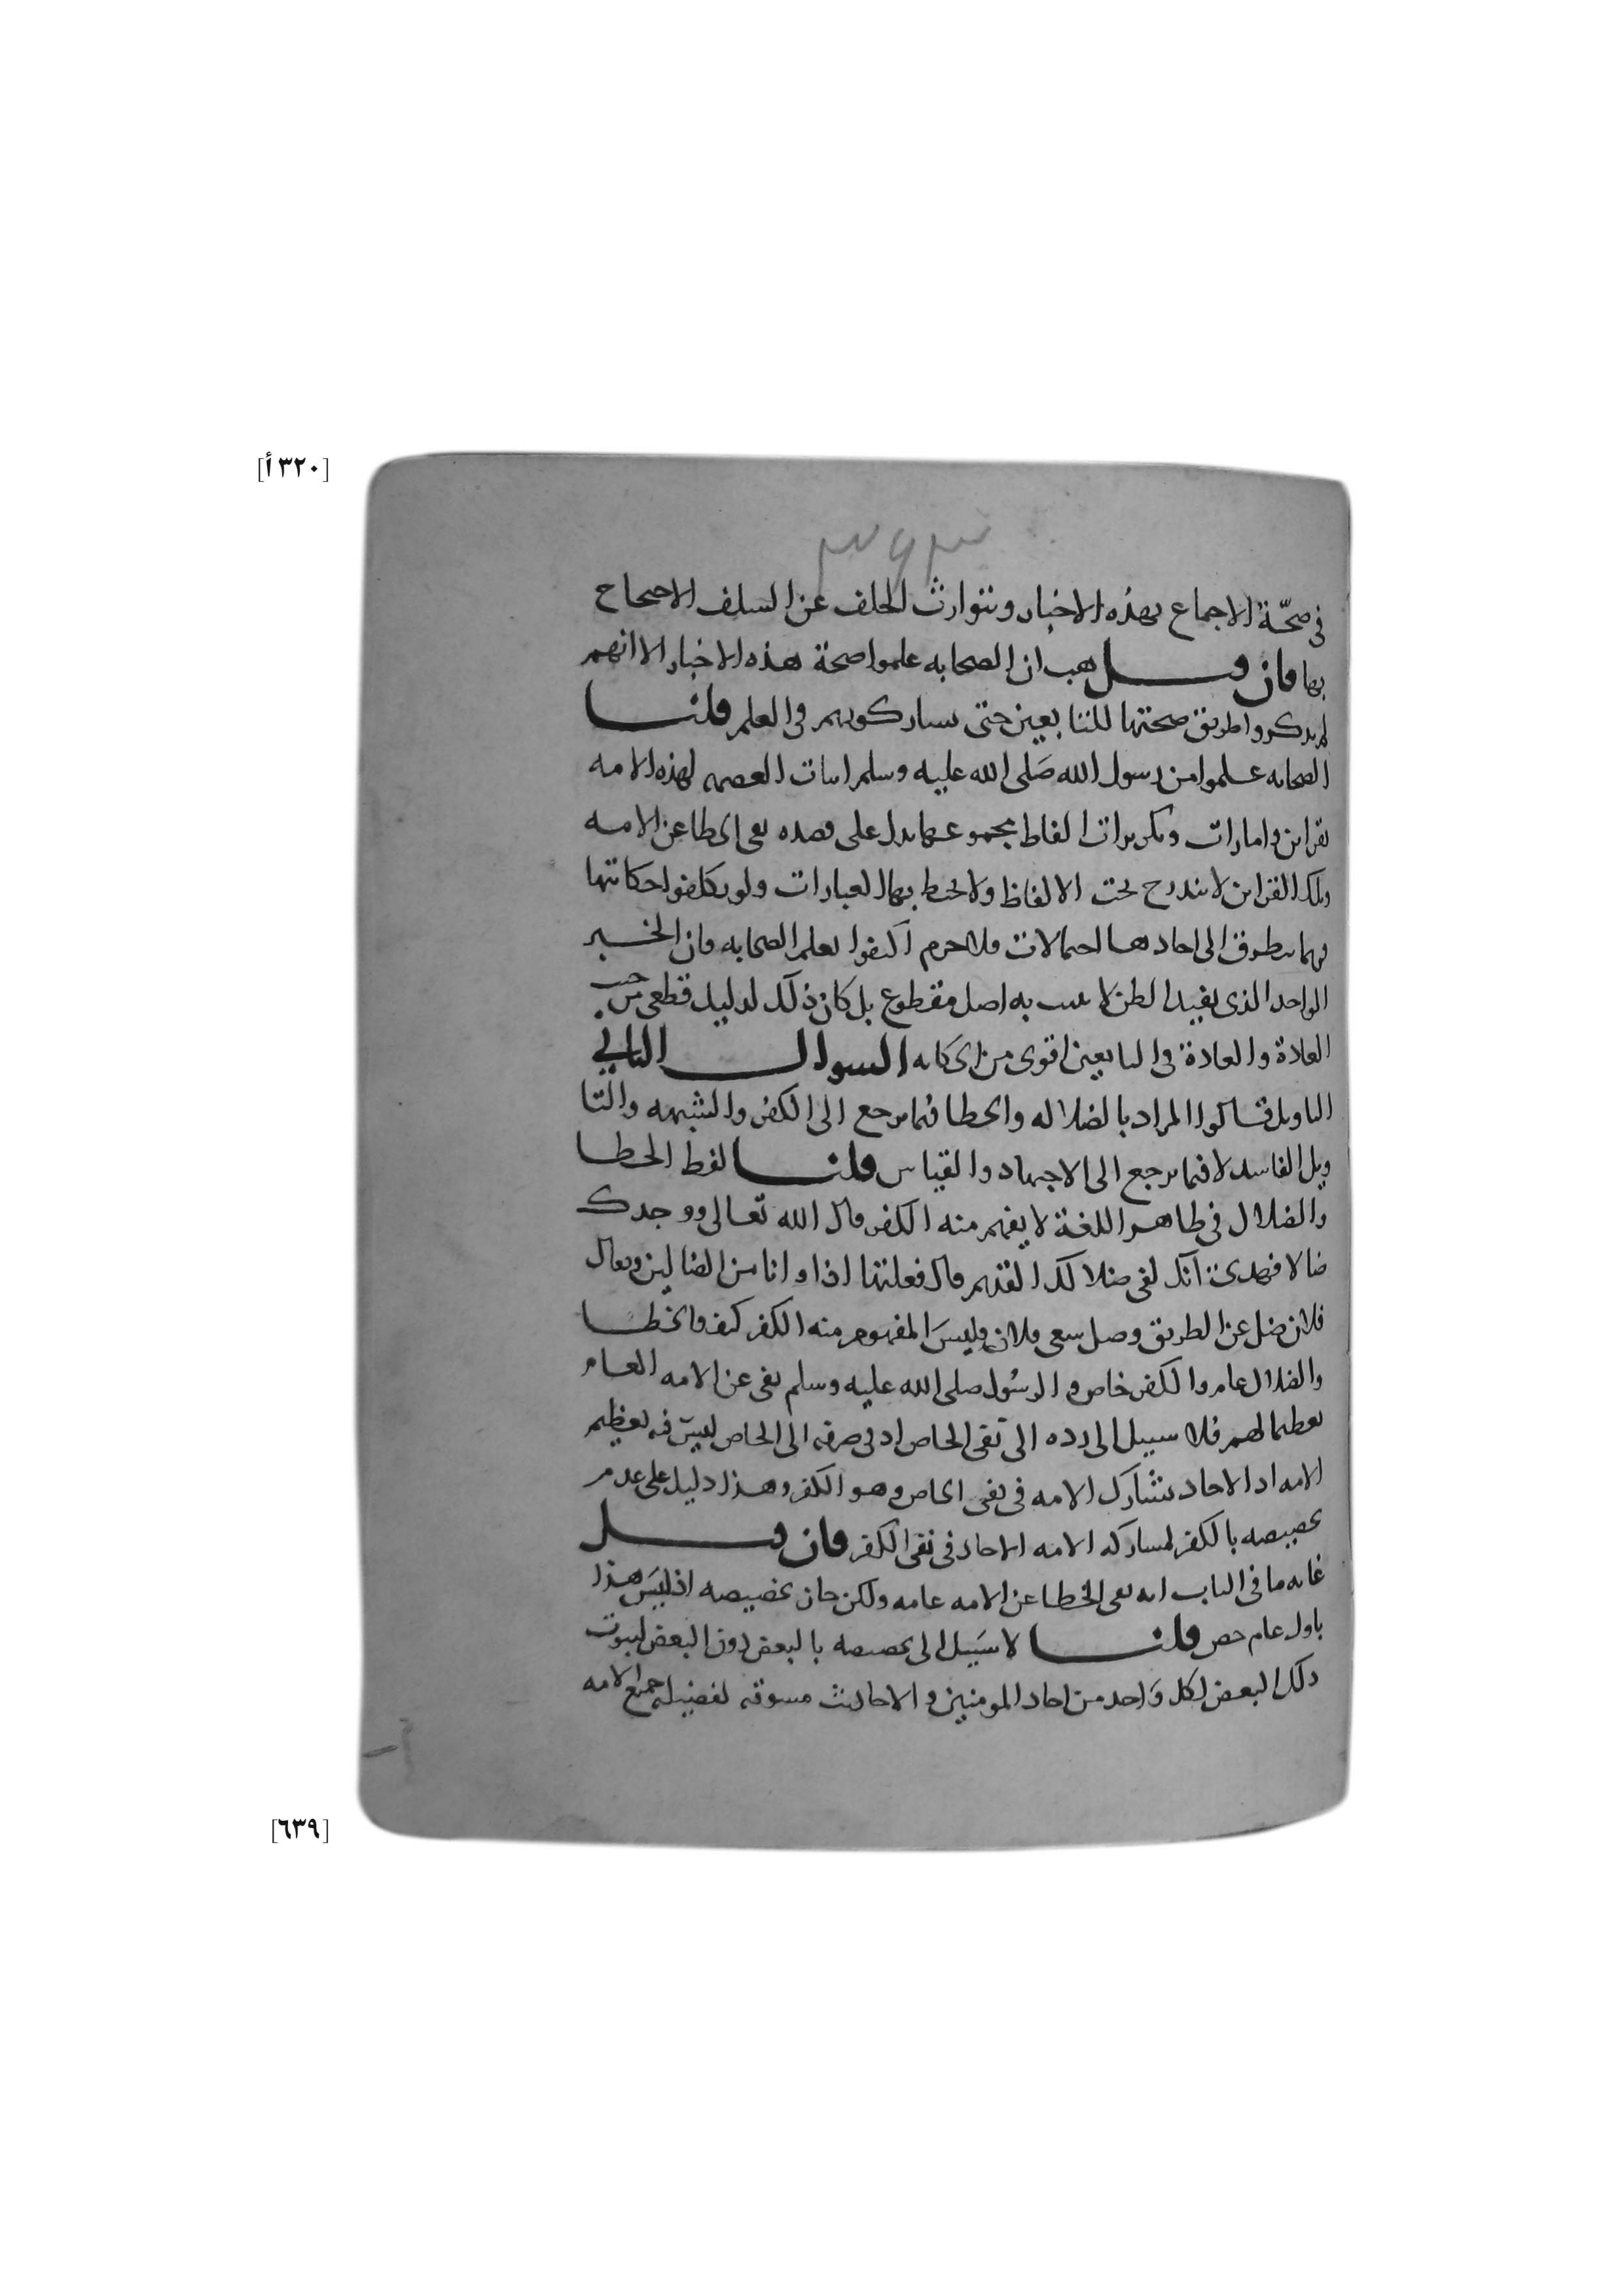 [٣٢٠أ]
في صحّة الاجماع بهذه الاخبار وتتوارث الخلف عن السلف الاحتجاج
بها فان قيل هب ان الصحابه علموا صحة هذه الاخبار الا انهم
لم يذكروا طريق صحتها للتابعين حتى يساركونهم في العلم قلنا
الصحابه علموا من رسول الله صَلى الله عليه وسلم اثبات العصمه لهذه الامه
بقراين وامارات وتكريرات الفاظ مجموعها يدل على قصده نفى الخطا عن الامه
وتلك القراين لا تندرج تحت الالفاظ ولا تحيط بها العبارات ولو تكلفوا حكايتها
ربما يتطرق الى احادها احتمالات فلا جرم اكتفوا بعلم الصحابه فان الخبر
الواحد الذى يفيد الظن لا يثبت به اصل مقطوع بل كان ذلك لدليل قطعي من حيث
العادة والعادة في التابعين اقوى من الحكايه السوال الثاني
التاويل قالوا المراد بالضلاله والخطا فيما يرجع الى الكفر والشبهه والتا
ويل الفاسد لا فيما يرجع الى الاجتهاد والقياس قلنا لفظ الخطا
والضلال في ظاهر اللغة لا يفهم منه الكفر قال الله تعالى ووجدك
ضالا فهدى انك لفى ضلالك القديم قال فعلتها اذا وانا من الضالين ويقال
فلان ضل عن الطريق وضل سعى فلان وليسَ المفهوم منه الكفر كيف والخطا
والضلال عام والكفر خاص والرسُول صلى الله عليه وسلم نفى عن الامه العام
تعظيما لهم فلا سبيل الى رده الى نفى الخاص اذ في صرفه الى الخاص ليسَ فيه تعظيم
الامه اذ الاحاد تشارك الامه في نفى الخاص وهو الكفر وهذا دليل على عدم
تخصيصه بالكفر لمساركه الامه الاحاد في نفى الكفر فان قيل
غايه ما في الباب انه نفى الخطا عن الامه عامه ولكن جاز تخصيصه اذ ليسَ هذا
باول عام خص قلنا لا سَبيل الى تخصيصه بالبعض دون البعض لثبوت
ذلك البعض لكل وَاحد من احاد المومنين والاحاديث مسوقه لفضيله جميع الامه
[٦٣٩]